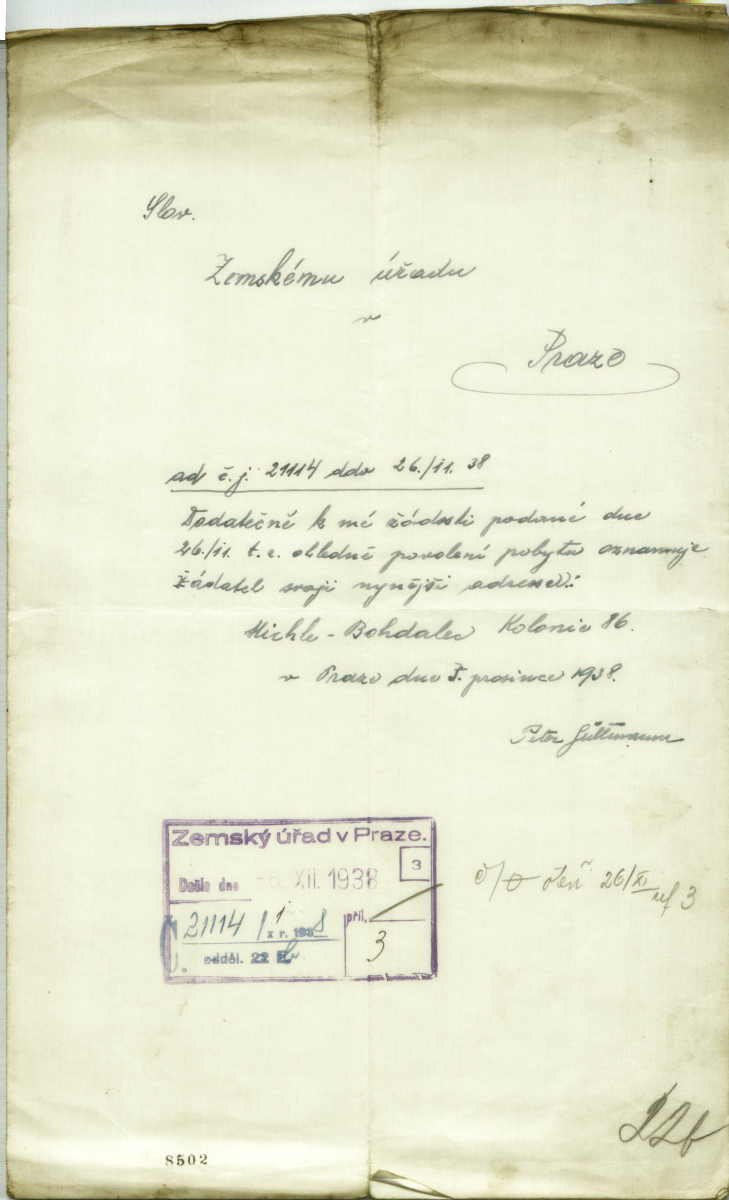 Slav.
Zemskému úřadu
v
Praze
ad č.j. 21114 ddo 26./11. 38
Dodatečně k mé žádosti podané dne
26./11. t.r. ohledně povolení pobytu oznamuje
žádatel svoji nynější adresu:
Michle - Bohdalec Kolonie 86.
v Praze dne 5. prosince 1938.
Peter Güttmann
Zemský úřad v Praze.
3
Došlo dne XII. 1938
21114 / 1 x r. 1938
příl.
Č.
odděl. 22
3
26/XI
ref 3
22b
8502